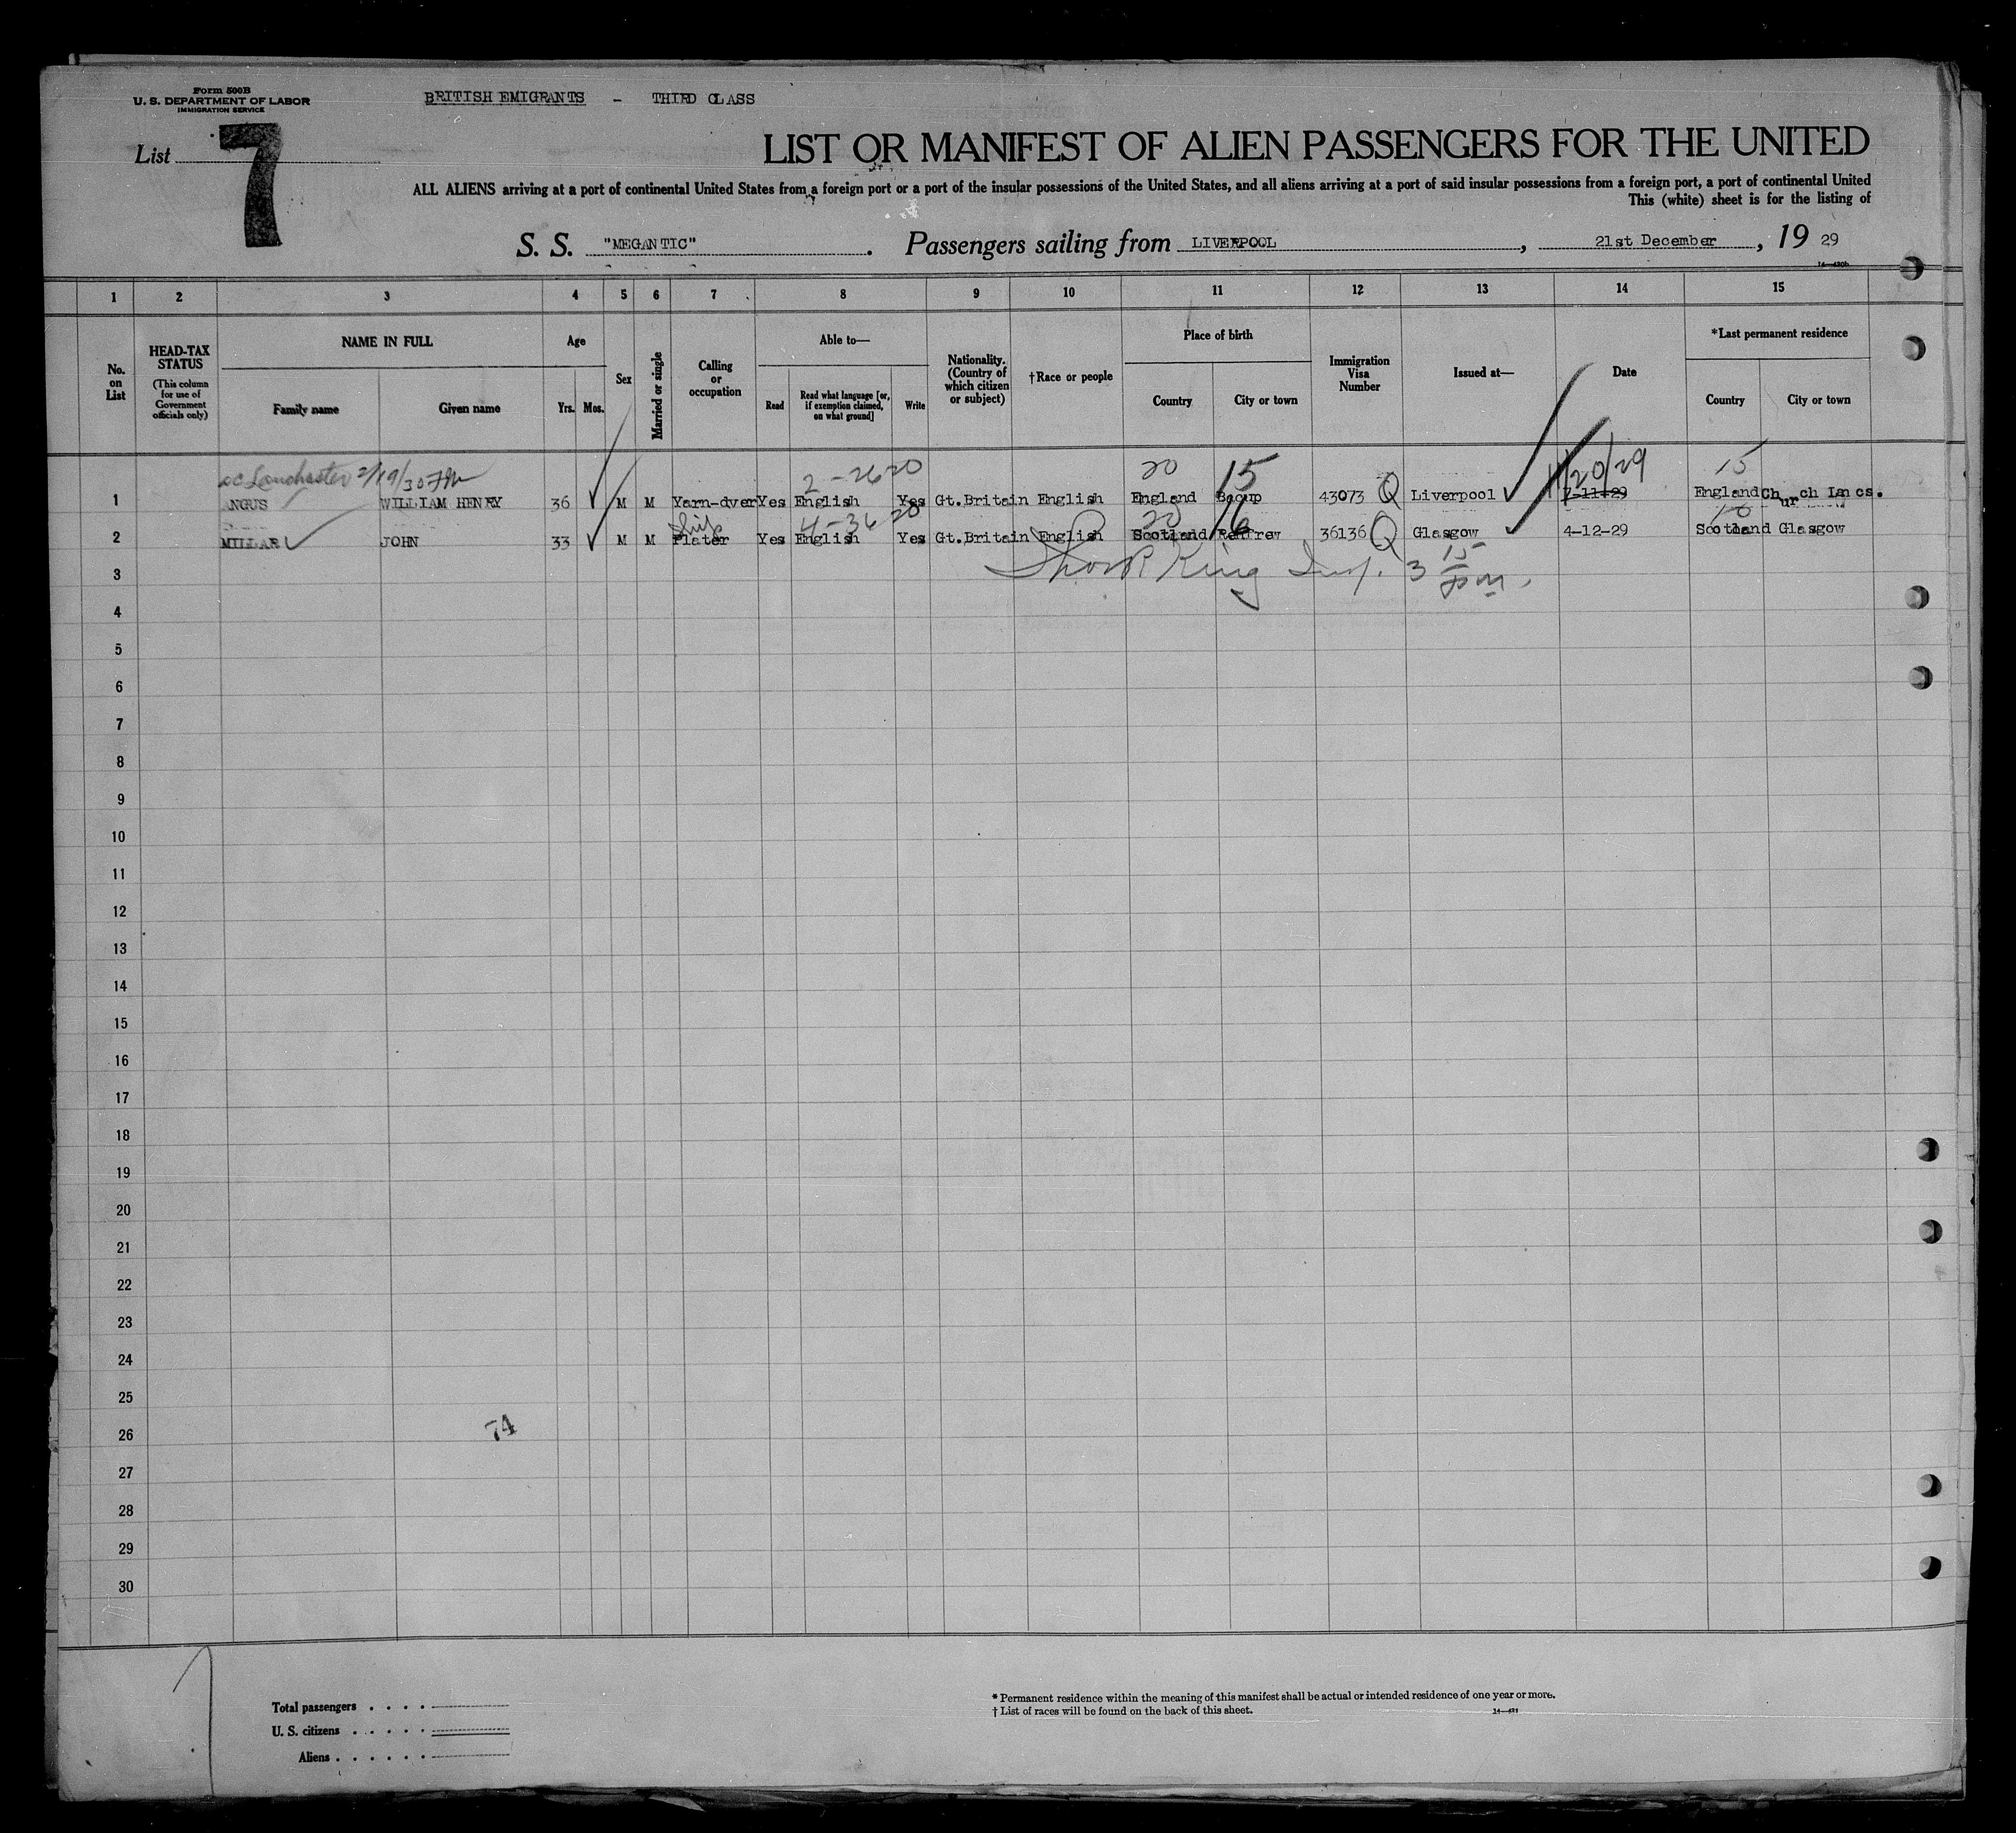 Form 500B
U. S. DEPARTMENT OF LABOR
IMMIGRATION SERVICE
BRITISH EMIGRANTS - THIRD CLASS
List 7
LIST OR MANIFEST OF ALIEN PASSENGERS FOR THE UNITED
ALL ALIENS arriving at a port of continental United States from a foreign port or a port of the insular possessions of the United States, and all aliens arriving at a port of said insular possessions from a foreign port, a port of continental United
This (white) sheet is for the listing of
S. S. "MEGANTIC". Passengers sailing from LIVERPOOL, 21st December, 19 29
1 2 3 4 5 6 7 8 9 10 11 12 13 14 15
No. on List
HEAD-TAX STATUS (This column for use of Government officials only)
NAME IN FULL
Family name
Given name
Age
Yrs. Mos.
Sex
Married or single
Calling or occupation
Able to—
Read
Read what language [or, if exemption claimed, on what ground]
Write
Nationality. (Country of which citizen or subject)
†Race or people
Place of birth
Country
City or town
Immigration Visa Number
Issued at—
Date
*Last permanent residence
Country
City or town
2/19/30
2-26 20
20
15
11/20/29
15
1 ANGUS WILLIAM HENRY 36 M M Yarn-dyer Yes English Yes Gt.Britain English England Bacup 43073 Q Liverpool 7-11-29 England Church Lancs.
Ship
4-36 20
20
16
2 MILLAR JOHN 33 M M Plater Yes English Yes Gt.Britain English Scotland Renfrew 36136 Q Glasgow 4-12-29 Scotland Glasgow
3
King Insp. 3 15 P.M.
4
5
6
7
8
9
10
11
12
13
14
15
16
17
18
19
20
21
22
23
24
25
26
74
27
28
29
30
Total passengers . . . .
U. S. citizens . . . . .
Aliens . . . . . .
* Permanent residence within the meaning of this manifest shall be actual or intended residence of one year or more.
† List of races will be found on the back of this sheet.